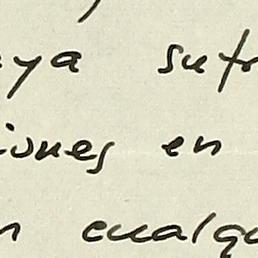 ya sufr
iones en
n cualqu